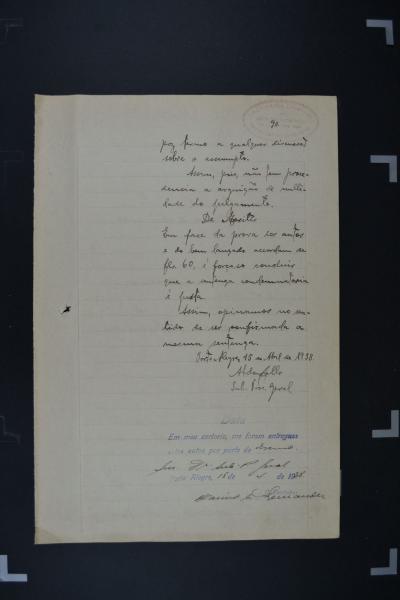 90
poz termo a qualquer discussão
sobre o assumpto.
Assim, pois, não tem proce-
dencia a arguição de nulli-
dade do julgamento.
De Meritis
Em face da prova dos autos
e do bem lançado accordam de
fls. 60, é forçoso concluir
que a sentença condemnatoria
é justa.
Assim, opinamos no sen-
tido de ser confirmada a
mesma sentença.
Porto Alegre, 18 de Abril de 1938.
Sub. Proc. Geral
Data
Em meu cartorio, me foram entregues
estes autos por parte do
Snr. Dr. Sub. P. Geral
Porto Alegre, 18 de 4 de 1938